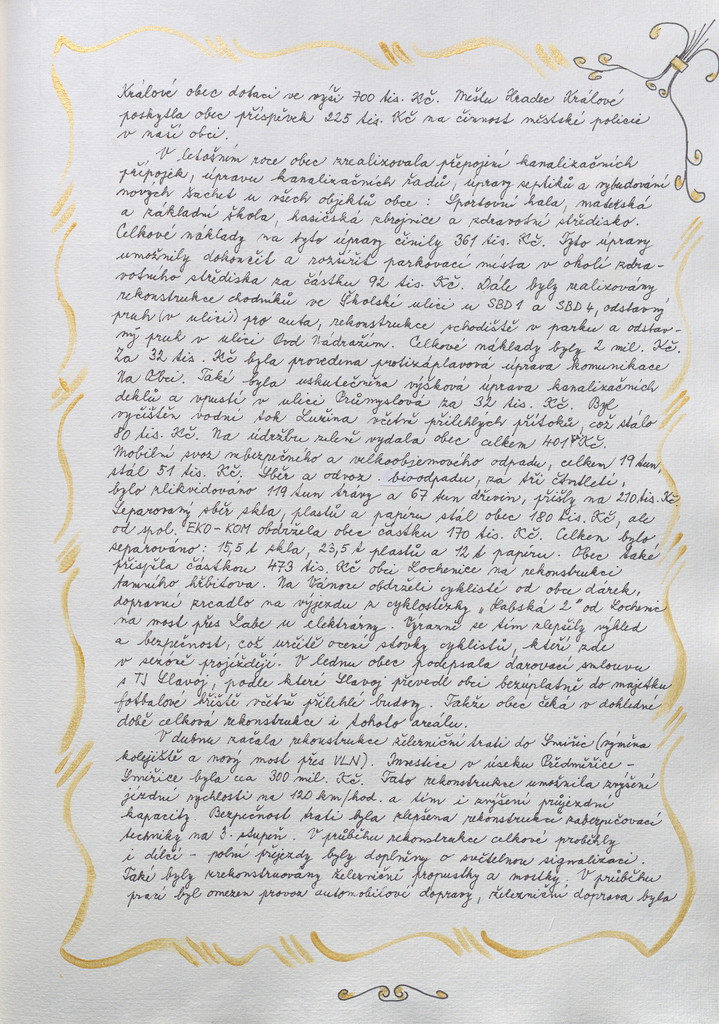 Králové obec dotaci ve výši 700 tis. Kč. Městu Hradec Králové
poskytla obec příspěvek 225 tis. Kč na činnost městské policie
v naší obci.
V letošním roce obec zrealizovala přepojení kanalizačních
přípojek, úpravu kanalizačních řadů, úpravy septiků a vybudování
nových šachet u všech objektů obce: Sportovní hala, mateřská
a základní škola, hasičská zbrojnice a zdravotní středisko.
Celkové náklady na tyto úpravy činily 361 tis. Kč. Tyto úpravy
umožnily dokončit a rozšířit parkovací místa v okolí zdra-
votního střediska za částku 92 tis. Kč. Dále byly realizovány
rekonstrukce chodníků ve Školské ulici u SBD 1 a SBD 4, odstavný
pruh (v ulici) pro auta, rekonstrukce schodiště v parku a odstav-
ný pruh v ulici Pod Nádražím. Celkové náklady byly 2 mil. Kč.
Za 32 tis. Kč byla provedena protizáplavová úprava komunikace
Na Obci. Také byla uskutečněna výšková úprava kanalizačních
deklů a vpustí v ulici Průmyslová za 32 tis. Kč. Byl
vyčištěn vodní tok Lužina včetně přilehlých přítoků, což stálo
80 tis. Kč. Na údržbu zeleně vydala obec celkem 401 Kč.
Mobilní svoz nebezpečného a velkoobjemového odpadu, celkem 19 tun,
stál 51 tis. Kč. Sběr a odvoz bioodpadu, za tři čtvrtletí,
bylo zlikvidováno 119 tun trávy a 67 tun dřevin, přišly na 210 tis. Kč.
Separovaný sběr skla, plastů a papíru stál obec 180 tis. Kč, ale
od spol. EKO-KOM obdržela obec částku 170 tis. Kč. Celkem bylo
separováno: 15,5 t skla, 23,5 t plastů a 12 t papíru. Obec také
přispěla částkou 473 tis. Kč obci Lochenice na rekonstrukci
tamního hřbitova. Na Vánoce obdrželi cyklisté od obce dárek,
dopravní zrcadlo na výjezdu z cyklostezky „Labská 2" od Lochenic
na most přes Labe u elektrárny. Výrazně se tím zlepšily výhled
a bezpečnost, což určitě ocení stovky cyklistů, kteří zde
v sezoně projíždějí. V lednu obec podepsala darovací smlouvu
s TJ Slavoj, podle které Slavoj převedl obci bezúplatně do majetku
fotbalové hřiště včetně přilehlé budovy. Takže obec čeká v dohledné
době celková rekonstrukce i tohoto areálu.
V dubnu začala rekonstrukce železniční trati do Smiřic (výměna
kolejiště a nový most přes VLN). Investice v úseku Předměřice -
Smiřice byla cca 300 mil. Kč. Tato rekonstrukce umožnila zvýšení
jízdní rychlosti na 120 km/hod. a tím i zvýšení průjezdní
kapacity. Bezpečnost trati byla zlepšena rekonstrukcí zabezpečovací
techniky na 3. stupeň. V průběhu rekonstrukce celkové proběhly
i dílčí - polní přejezdy byly doplněny o světelnou signalizaci.
Také byly zrekonstruovány železniční propustky a mostky. V průběhu
prací byl omezen provoz automobilové dopravy, železniční doprava byla